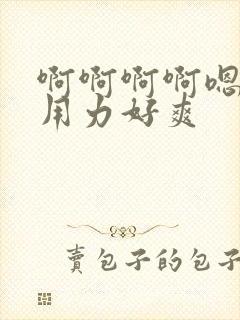 啊啊啊啊嗯
用力好爽
賣包子的包子